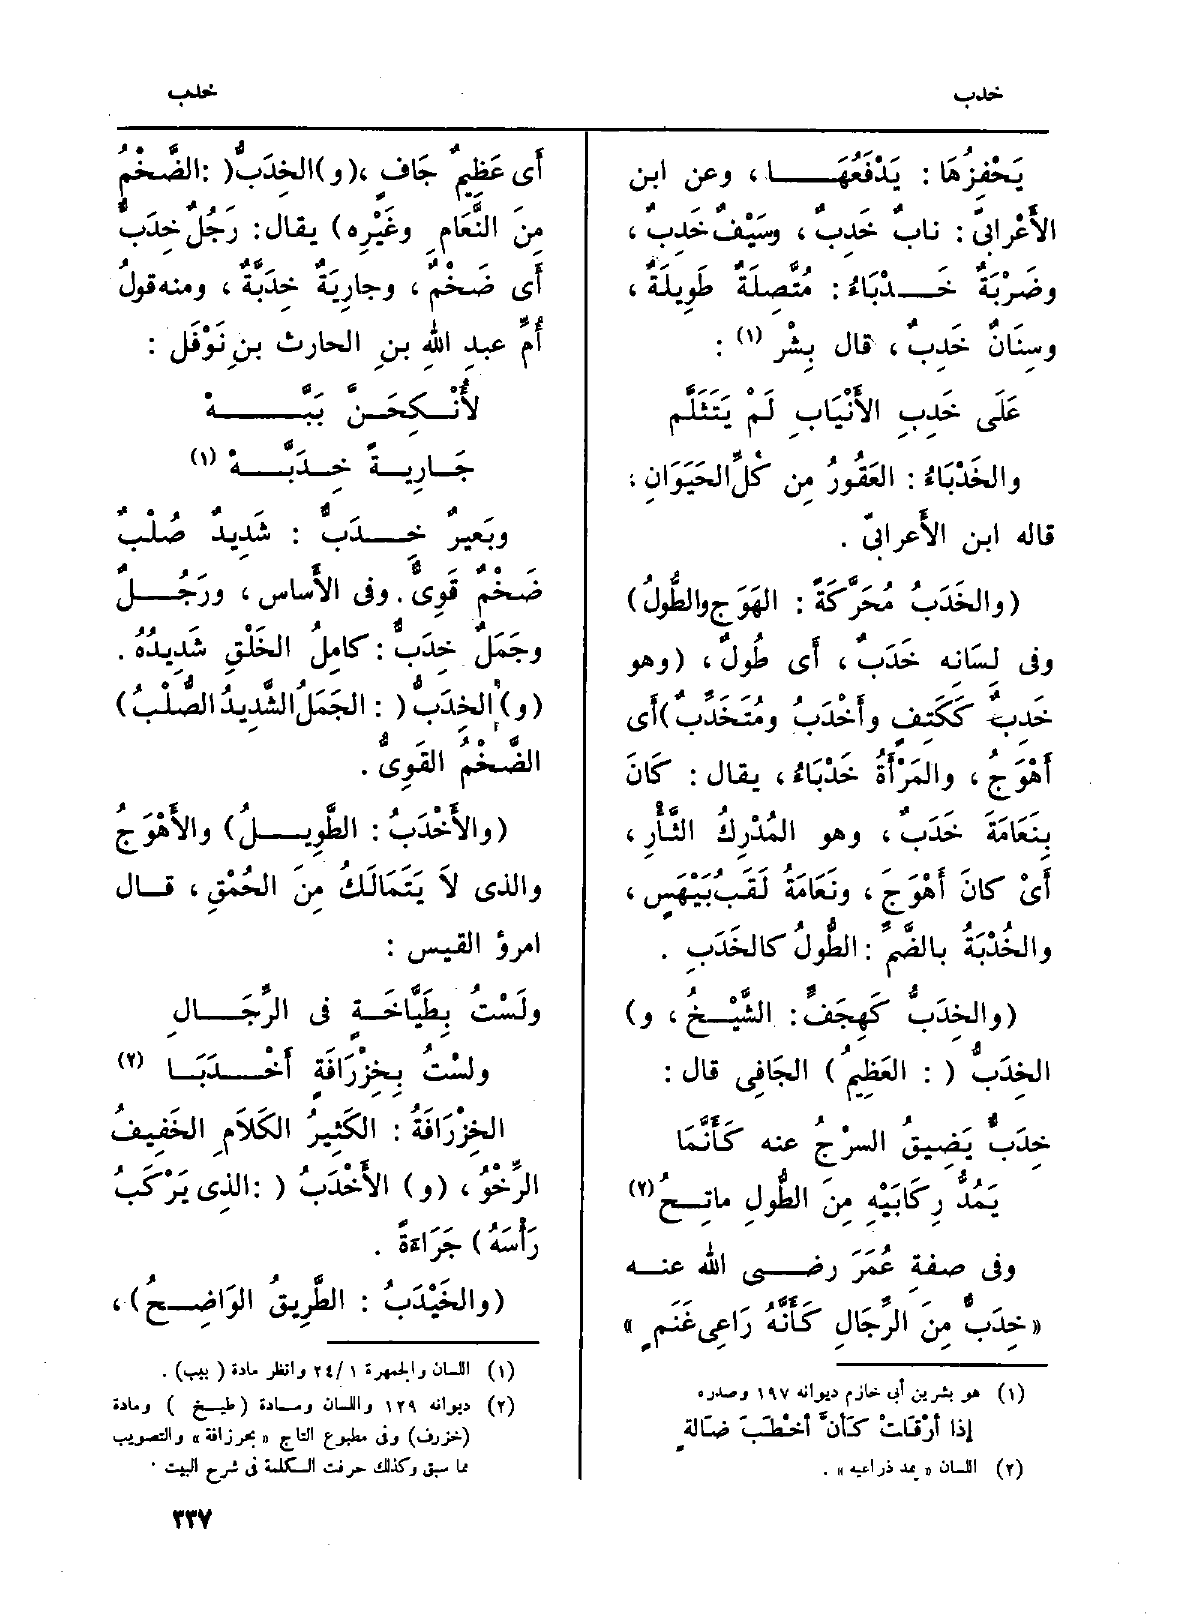 خدب
خدب
يَحْفِزُهَا : يَدْفَعُهَـــا ، وعن ابن
الأَعْرابىّ : نابٌ خَدِبٌ ، وسَيْفٌ خَدِبٌ ،
وضَرْبَةٌ خَـــدْبَاءُ : مُتَّصِلَةٌ طَوِيلَةٌ ،
وسِنَانٌ خَدِبٌ ، قال بِشْر (١) :
عَلَى خَدِبِ الأَنْيَابِ لَمْ يَتَثَلَّمِ
والخَدْبَاءُ : العَقُورُ مِن كُلِّ الحَيَوَانِ ،
قاله ابن الأَعرابىّ .
(والخَدَبُ مُحَرَّكَةً : الهَوَجُ والطُّولُ)
وفى لِسَانِه خَدَبٌ ، أَى طُولٌ ، (وهو
خَدِبٌ كَكَتِفٍ وأَخْدَبُ ومُتَخَدِّبٌ) أَى
أَهْوَجُ ، والمَرْأَةُ خَدْبَاءُ ، يقال : كَانَ
بِنَعَامَةَ خَدَبٌ ، وهو المُدْرِكُ الثَّأْرِ ،
أَىْ كانَ أَهْوَجَ ، ونَعَامَةُ لَقَبُ بَيْهَسٍ ،
والخُدْبَةُ بالضَّمِّ : الطُّولُ كالخَدَبِ .
(والخِدَبُّ كَهِجَفٍّ : الشَّيْـــخُ ، و)
الخِدَبُّ ( : العَظِيمُ ) الجَافِى قال :
خِدَبٌّ يَضِيقُ السرْجُ عنه كَأَنَّمَا
يَمُدُّ رِكَابَيْهِ مِنَ الطُّولِ ماتِــحُ (٢)
وفى صفةِ عُمَرَ رضـــى الله عنــه
« خِدَبٌّ مِنَ الرِّجَالِ كَأَنَّهُ رَاعِى غَنَمٍ »
(١) هو بشر بن أبى خازم ديوانه ١٩٧ وصدره
إذا أرْقَلَتْ كَأنَّ أخْطَبَ ضَالَةٍ
(٢) اللسان « يمد ذراعيه » .
أَى عَظِيمٌ جَافٍ ، (و) الخِدَبُّ ( : الضَّخْمُ
مِنَ النَّعَامِ وغَيْرِه) يقال : رَجُلٌ خِدَبٌّ
أَى ضَخْمٌ ، وجارِيَةٌ خِدَبَّةٌ ، ومنه قولُ
أُمِّ عبدِ اللهِ بنِ الحارث بنِ نَوْفَل :
لأُنْـكِحَـنَّ بَبَّـــهْ
جَـارِيــةً خِـدَبَّــهْ (١)
وبَعِيرٌ خِـــدَبٌّ : شَدِيدٌ صُلْبٌ
ضَخْمٌ قَوِىٌّ . وفى الأَساس ، ورَجُـــلٌ
وجَمَلٌ خِدَبٌّ : كامِلُ الخَلْقِ شَدِيدُهُ .
(و) الخِدَبُّ ( : الجَمَلُ الشَّدِيدُ الصُّلْبُ)
الضَّخْمُ القَوِىُّ .
(والأَخْدَبُ : الطَّوِيــلُ) والأَهْوَجُ
والذى لاَ يَتَمَالَكُ مِنَ الحُمْقِ ، قــال
امرؤ القيس :
ولَسْتُ بِطَيَّاخَـةٍ فى الرِّجَـــالِ
ولسْتُ بِخِزْرَافَةٍ أَخْـــدَبَــا (٢)
الخِزْرَافَةُ : الكَثِيرُ الكَلاَمِ الخَفِيفُ
الرِّخْوُ ، (و) الأَخْدَبُ ( : الذى يَرْكَبُ
رَأْسَهُ) جَرَاءَةً .
(والخَيْدَبُ : الطَّرِيقُ الوَاضِــحُ) ،
(١) اللسان والجمهرة ١ /٢٤ وانظر مادة ( ببب) .
(٢) ديوانه ١٢٩ واللسان ومــادة (طيــخ ) ومادة
(خزرف) وفى مطبوع التاج « بحرزافة » والتصويب
مما سبق وكذلك حرفت الــكلمة فى شرح البيت .
٣٣٧